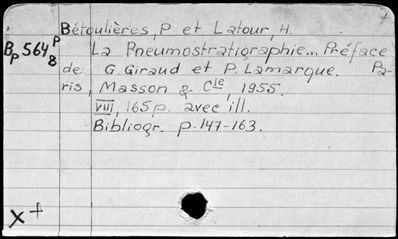 Bétoulières, P et Latour, H.
Bp 564 P8 La Pneumostratigraphie... Préface
de G. Giraud et P. Lamarque. Pa-
ris, Masson & Cie, 1955.
VIII, 165 p. avec ill.
Bibliogr. p. 147-163.
X +